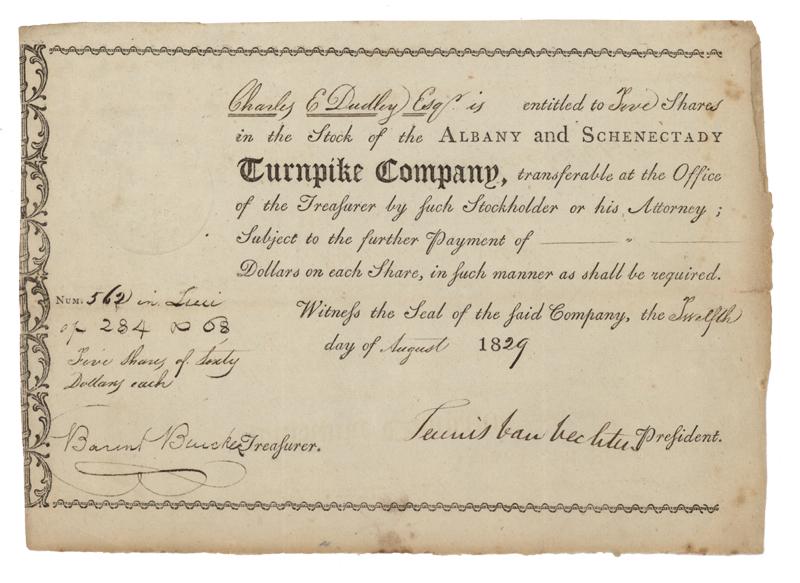 Charles E Dudley Esqr. is entitled to Five Shares
in the Stock of the ALBANY and SCHENECTADY
Turnpike Company, transferable at the Office
of the Treasurer by ſuch Stockholder or his Attorney ;
Subject to the further Payment of — " —
Dollars on each Share, in ſuch manner as ſhall be required.
Witneſs the Seal of the ſaid Company, the Twelfth
day of August 1829
NUM. 562 in Lieu
of 284 & 68
Five Shares of Sixty
Dollars each
Barent Bleecker Treaſurer.
Teunis Van Vechten Preſident.